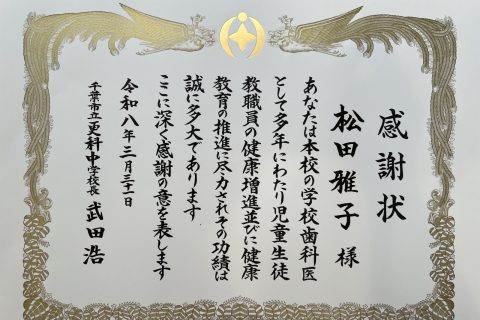 感謝状
松田雅子 様
あなたは本校の学校歯科医
として多年にわたり児童生徒
教職員の健康増進並びに健康
教育の推進に尽力されその功績は
誠に多大であります
ここに深く感謝の意を表します
令和八年三月三十一日
千葉市立更科中学校長 武田浩